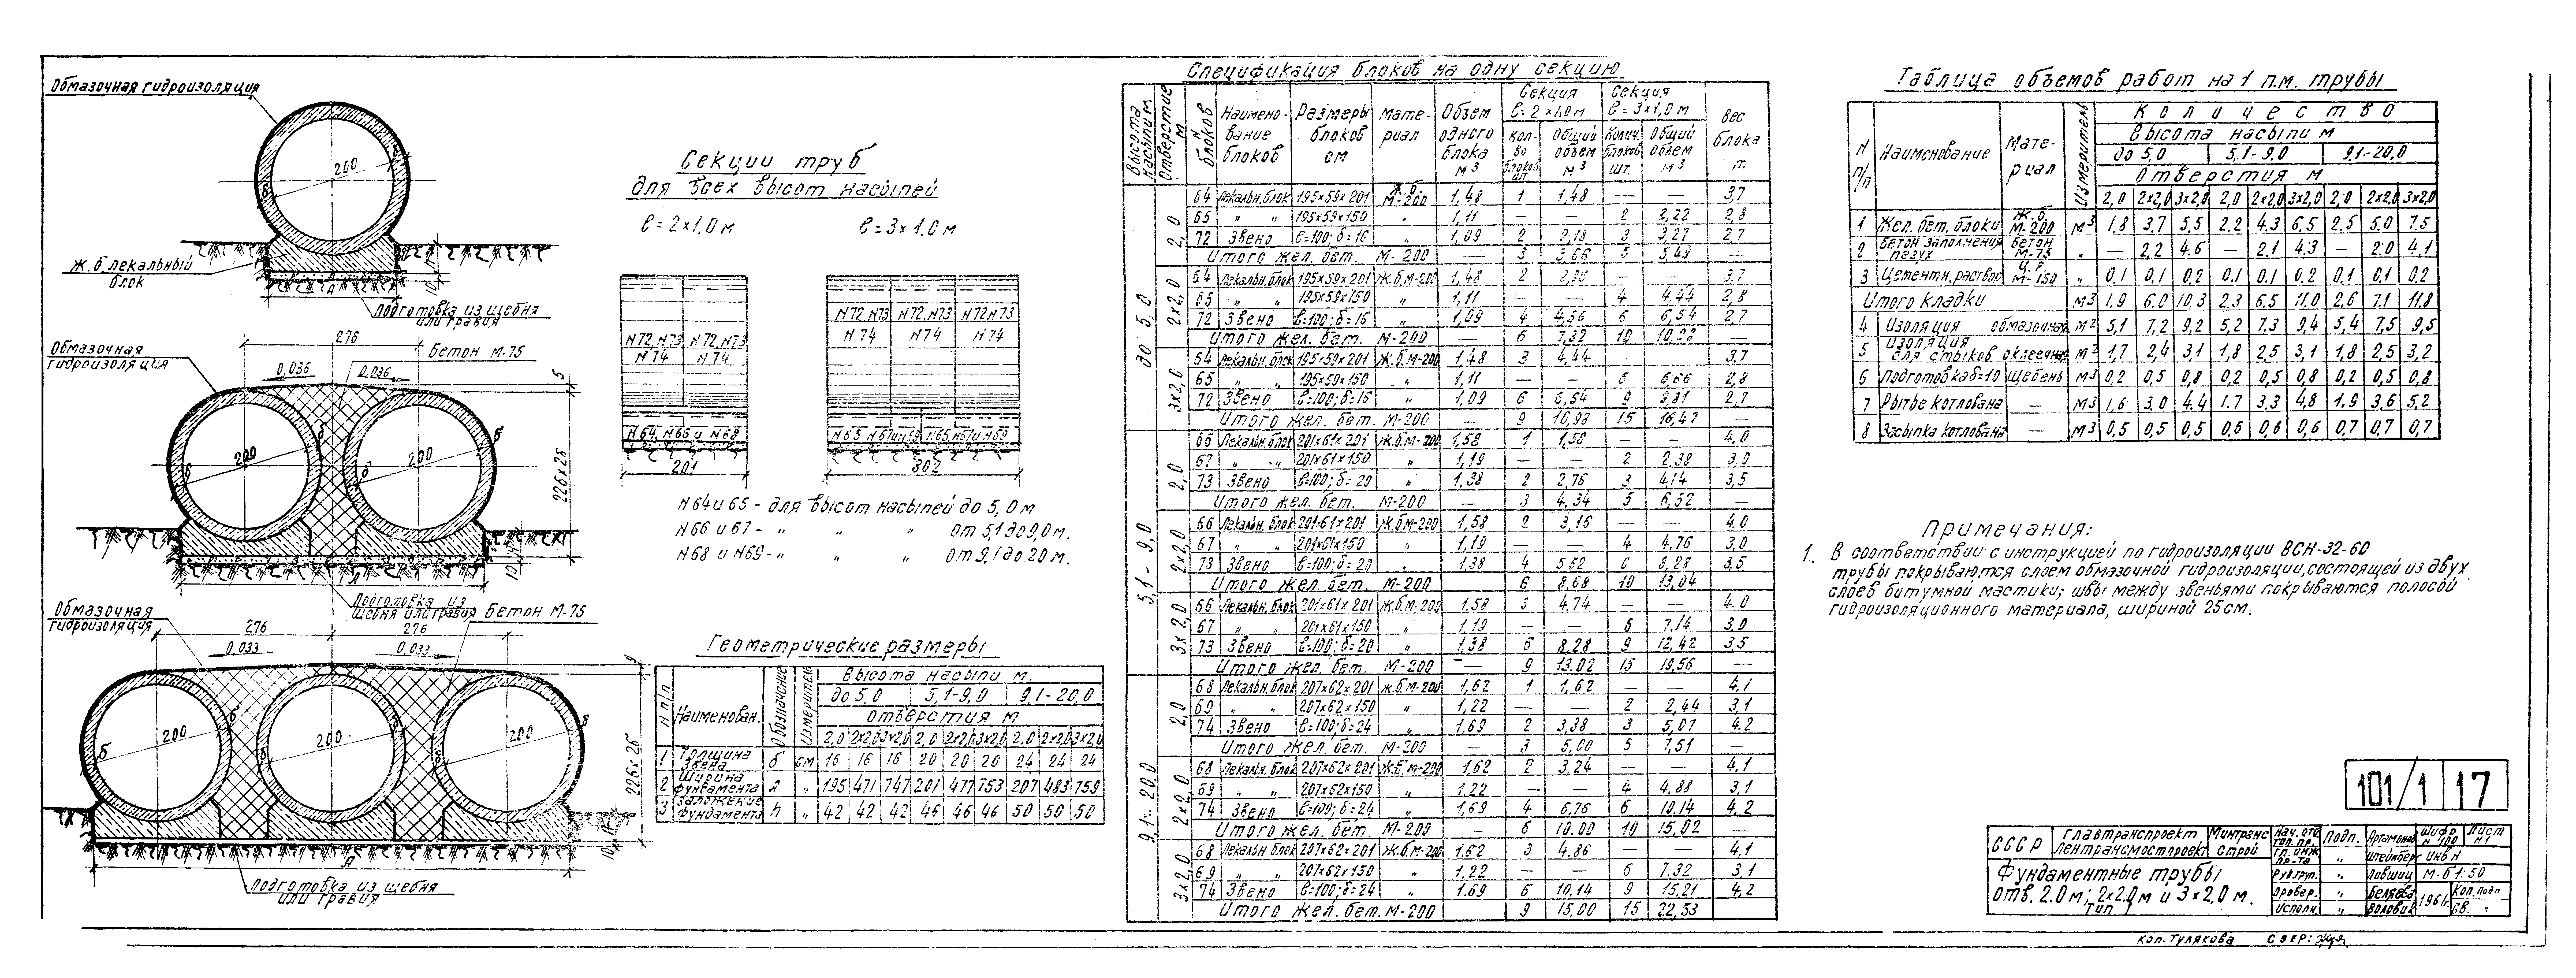 Обмазочная гидроизоляция
200
б
Ж.б лекальный
блок
Подготовка из щебня
или гравия
276
Обмазочная
гидроизоляция
Бетон М-75
0,036 0,036
5
200 200
226+2б
Подготовка из
щебня или гравия
Бетон М-75
Обмазочная
гидроизоляция
276 276
0,033 0,033
9
200 200 200
226+2б
Подготовка из щебня
или гравия
Секции труб
для всех высот насыпей
ℓ=2×1,0м ℓ=3×1,0м
N72,N73 N72,N73
N74 N74
N64,N66 и N68
201
N72,N73 N72,N73 N72,N73
N74 N74 N74
N65 N67 и N69 N65,N67 и N69
302
N64 и 65 - для высот насыпей до 5,0м
N66 и 67 - " " " от 5,1 до 9,0м.
N68 и N69 - " " " от 9,1 до 20м.
Геометрические размеры
N п/п Наименован. Обозначение Измеритель Высота насыпи м.
до 5,0 5,1-9,0 9,1-20,0
отверстия м
2,0 2×2,0 3×2,0 2,0 2×2,0 3×2,0 2,0 2×2,0 3×2,0
1 Толщина звена б см 16 16 16 20 20 20 24 24 24
2 Ширина фундамента А " 195 471 747 201 477 753 207 483 759
3 Заложение фундамента h " 42 42 42 46 46 46 50 50 50
Спецификация блоков на одну секцию
Высота насыпи м. Отверстие м N блоков Наименование блоков Размеры блоков см Материал Объем одного блока м³ Секция ℓ=2×1,0м Секция ℓ=3×1,0м вес блока т
кол-во блоков шт. Общий объем м³ Колич. блоков шт. Общий объем м³
до 5,0
2,0
64 Лекальн.блок 195×59×201 ж.б. М-200 1,48 1 1,48 — — 3,7
65 " " 195×59×150 " 1,11 — — 2 2,22 2,8
72 Звено ℓ=100; δ=16 " 1,09 2 2,18 3 3,27 2,7
Итого жел. бет. М-200 — 3 3,66 5 5,49 —
2×2,0
64 Лекальн.блок 195×59×201 Ж.б.М-200 1,48 2 2,96 — — 3,7
65 " " 195×59×150 " 1,11 — — 4 4,44 2,8
72 Звено ℓ=100; δ=16 " 1,09 4 4,36 6 6,54 2,7
Итого жел. бет. М-200 6 7,32 10 10,98
3×2,0
64 Лекальн.блок 195×59×201 Ж.б.М-200 1,48 3 4,44 3,7
65 " " 195×59×150 " 1,11 — — 6 6,66 2,8
72 Звено ℓ=100; δ=16 " 1,09 6 6,54 9 9,81 2,7
Итого жел. бет. М-200 9 10,93 15 16,47
5,1 - 9,0
2,0
66 Лекальн.блок 201×61×201 Ж.б.М-200 1,58 1 1,58 — — 4.0
67 " " 201×61×150 " 1,19 — — 2 2,38 3,0
73 Звено ℓ=100; δ=20 " 1,38 2 2,76 3 4,14 3,5
Итого жел. бет. М-200 3 4,34 5 6,52 —
2×2,0
66 Лекальн.блок 201×61×201 Ж.б.М-200 1,58 2 3,16 — — 4,0
67 " " 201×61×150 " 1,19 — — 4 4,76 3,0
73 Звено ℓ=100; δ=20 1,38 4 5,52 6 8,28 3,5
Итого жел. бет. М-200 6 8,68 10 13,04
3×2,0
66 Лекальн.блок 201×61×201 Ж.б.М-200 1,58 3 4,74 — — 4.0
67 " " 201×61×150 " 1,19 — — 6 7,14 3,0
73 Звено ℓ=100; δ=20 " 1,38 6 8,28 9 12,42 3,5
Итого жел. бет. М-200 — 9 13,02 15 19,56 —
9,1 - 20,0
2,0
68 Лекальн.блок 207×62×201 Ж.б.М-200 1,62 1 1,62 — — 4,1
69 " " 207×62×150 " 1,22 — — 2 2,44 3,1
74 Звено ℓ=100; δ=24 " 1,69 2 3,38 3 5,07 4.2
Итого жел. бет. М-200 — 3 5,00 5 7,51 —
2×2,0
68 Лекальн.блок 207×62×201 Ж.б.М-200 1,62 2 3,24 — — 4,1
69 " " 207×62×150 " 1,22 — — 4 4,88 3,1
74 Звено ℓ=100; δ=24 " 1,69 4 6,76 6 10,14 4,2
Итого жел. бет. М-200 — 6 10,00 10 15,02 —
3×2,0
68 Лекальн.блок 207×62×201 Ж.б.М-200 1,62 3 4,86 — — 4,1
69 " " 207×62×150 " 1,22 — — 6 7.32 3,1
74 Звено ℓ=100; δ=24 " 1.69 6 10,14 9 15,21 4,2
Итого жел. бет. М-200 9 15,00 15 22,53
Таблица объемов работ на 1 п.м. трубы
N п/п Наименование Материал Измеритель Количество
Высота насыпи м
до 5,0 5,1-9,0 9,1-20,0
Отверстия м
2,0 2×2,0 3×2,0 2,0 2×2,0 3×2,0 2,0 2×2,0 3×2,0
1 Жел. бет. блоки Ж.б. М-200 м³ 1,8 3,7 5,5 2,2 4,3 6,5 2,5 5,0 7,5
2 Бетон заполнения пазух бетон М-75 " — 2,2 4,6 — 2,1 4,3 — 2,0 4,1
3 Цементн. раствор Ц.Р. М-150 " 0,1 0,1 0,2 0,1 0,1 0,2 0,1 0,1 0,2
Итого кладки м3 1,9 6,0 10,3 2,3 6,5 11,0 2,6 7,1 11,8
4 Изоляция обмазочная м² 5,1 7,2 9,2 5,2 7,3 9,4 5,4 7,5 9,5
5 Изоляция для стыков оклеечная м² 1,7 2,4 3,1 1,8 2,5 3,1 1,8 2,5 3,2
6 Подготовка δ=10 щебень м3 0,2 0,5 0,8 0,2 0,5 0,8 0,2 0,5 0,8
7 Рытье котлована — м3 1,6 3,0 4.4 1.7 3.3 4,8 1,9 3,6 5,2
8 Засыпка котлована — м3 0,5 0,5 0,5 0,6 0,6 0,6 0,7 0,7 0,7
Примечания:
1. В соответствии с инструкцией по гидроизоляции ВСН-32-60
трубы покрываются слоем обмазочной гидроизоляции, состоящей из двух
слоев битумной мастики; швы между звеньями покрываются полосой
гидроизоляционного материала, шириной 25см.
101/1 17
СССР Главтранспроект Ленгтрансмостпроект Минтрансстрой
Фундаментные трубы
отв. 2.0м; 2×2.0м и 3×2,0м.
Тип
Нач. отд. Подп. Артамонов Шифр N 100 Лист N1
Гл. инж. пр-та " Штейнберг Инв N
Рук.груп. " Лившиц М-б 1:50
Провер. " Беляева 1961г. Коп. подп
Исполн. " Волович Св. "
Коп. Тулякова Свер: